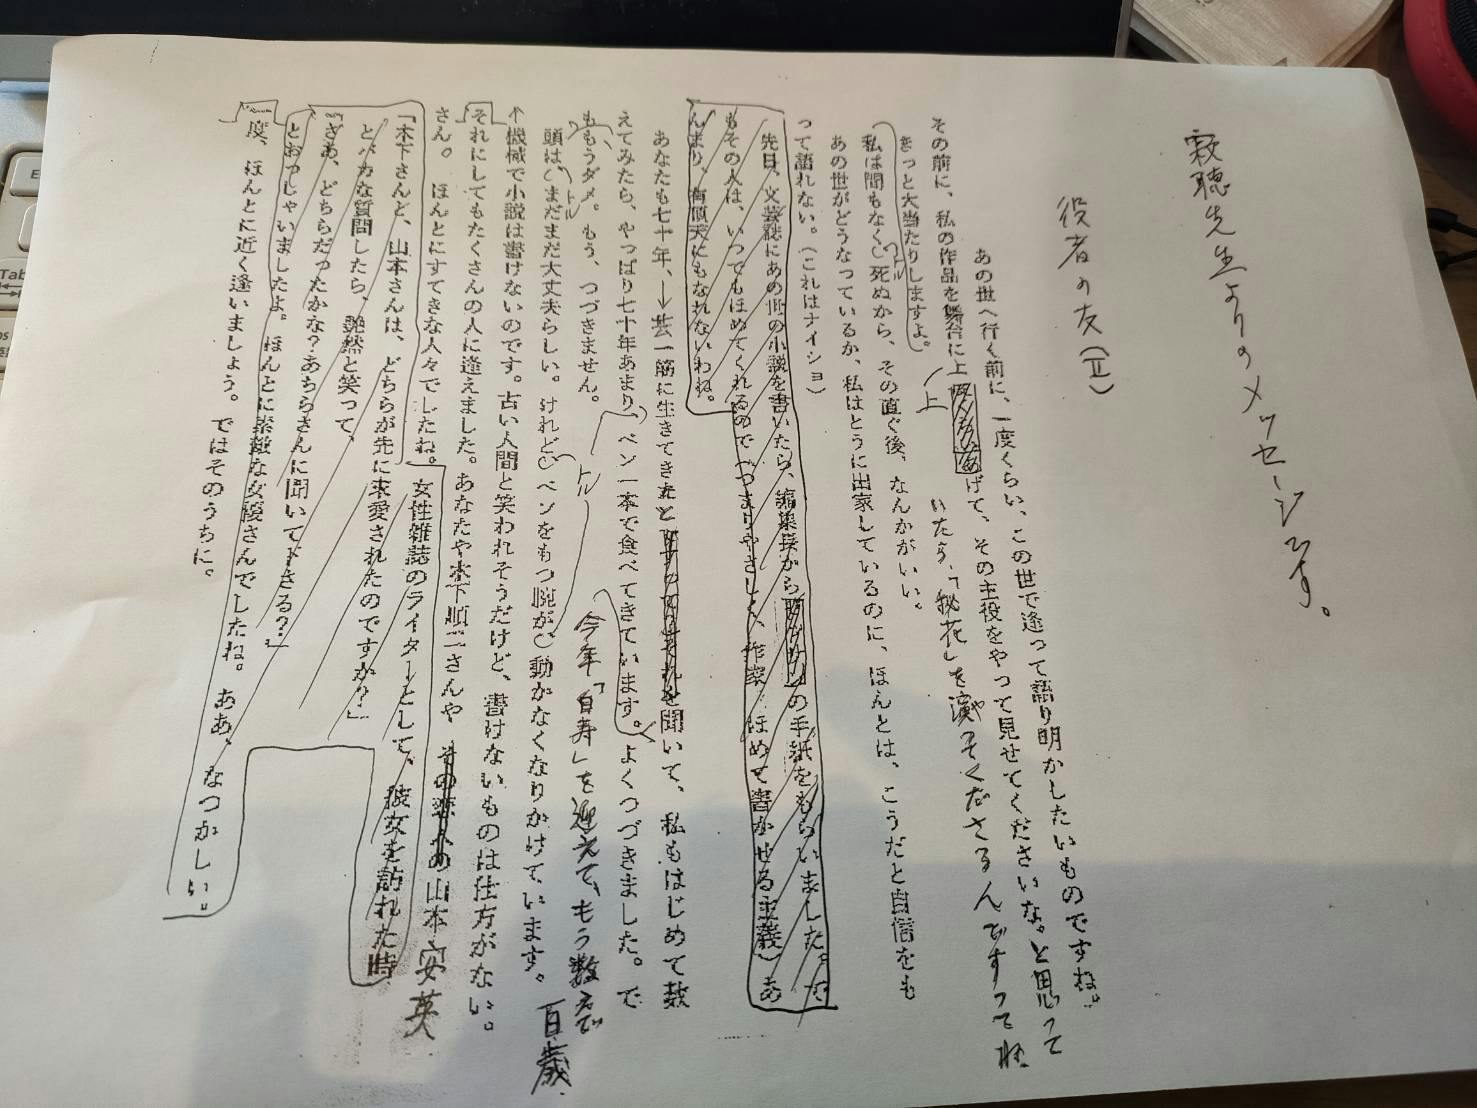 寂聴先生よりのメッセージです。
役者の友(II)
あの世へ行く前に、一度くらい、この世で逢って語り明かしたいものですね。
その前に、私の作品を舞台に上げて、その主役をやって見せてくださいな。と思って
上
いたら、「秘花」を演やってくださるんですって
きっと大当たりしますよ。
私は間もなく死ぬから、その直ぐ後、なんかがいい。
トル
あの世がどうなっているか、私はとうに出家しているのに、ほんとは、こうだと自信をも
って語れない。(これはナイショ)
先日、文芸誌にあの世の小説を書いたら、編集長からの手紙をもらいました。で
もその人は、いつでもほめてくれるのでつまりやさしく、作家 ほめて書かせる主義)あ
んまり、有頂天にもなれないわね。
あなたも七十年、芸一筋に生きてきたと を聞いて、私もはじめて数
えてみたら、やっぱり七十年あまり、ペン一本で食べてきています。よくつづきました。で
今年「白寿」を迎えて、もう数えで
百歳
ももうダメ。もう、つづきません。
頭はまだまだ大丈夫らしい。けれどペンをもつ腕が動かなくなりかけています。
トル
トル
機械で小説は書けないのです。古い人間と笑われそうだけど、書けないものは仕方がない。
それにしてもたくさんの人に逢えました。あなたや木下順二さんや 山本安英
さん。ほんとにすてきな人々でしたね。女性雑誌のライターとして、彼女を訪れた時
「木下さんと、山本さんは、どちらが先に求愛されたのですか?」
とバカな質問したら、艶然と笑って、
「さあ、どちらだったかな?あちらさんに聞いて下さる?」
とおっしゃいましたよ。ほんとに素敵な女優さんでしたね。ああ、なつかしい。
一度、ほんとに近く逢いましょう。ではそのうちに。